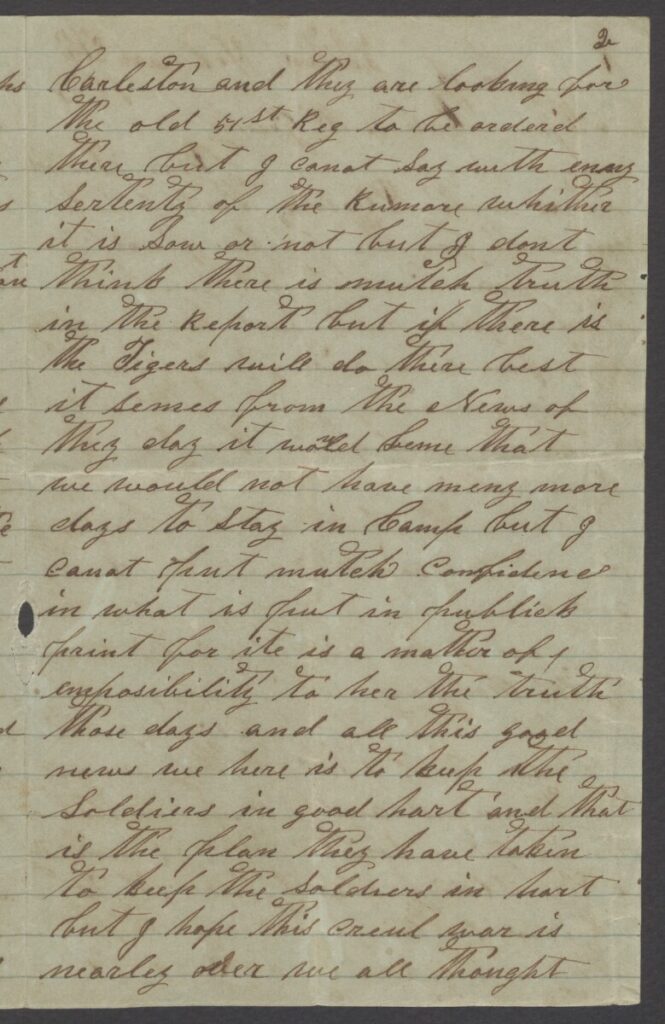 2
Carleston and they are looking for
the old 51st Reg to be orderd
there but I canot say with enny
sertenty of the Rumore whither
it is sow or not but I dont
think there is mutch truth
in the Report but if there is
the Tigers will do there best
it semes from the News of
they day it would seme that
we would not have meny more
days to stay in Camp but I
canot put mutch confidence
in what is put in publick
print for ite is a mather of
emposibility to her the truth
those days and all this good
news we here is to keep the
Soldiers in good hart and that
is the plan they have taken
to keep the Soldiers in hart
but I hope this creul war is
nearley over we all thought